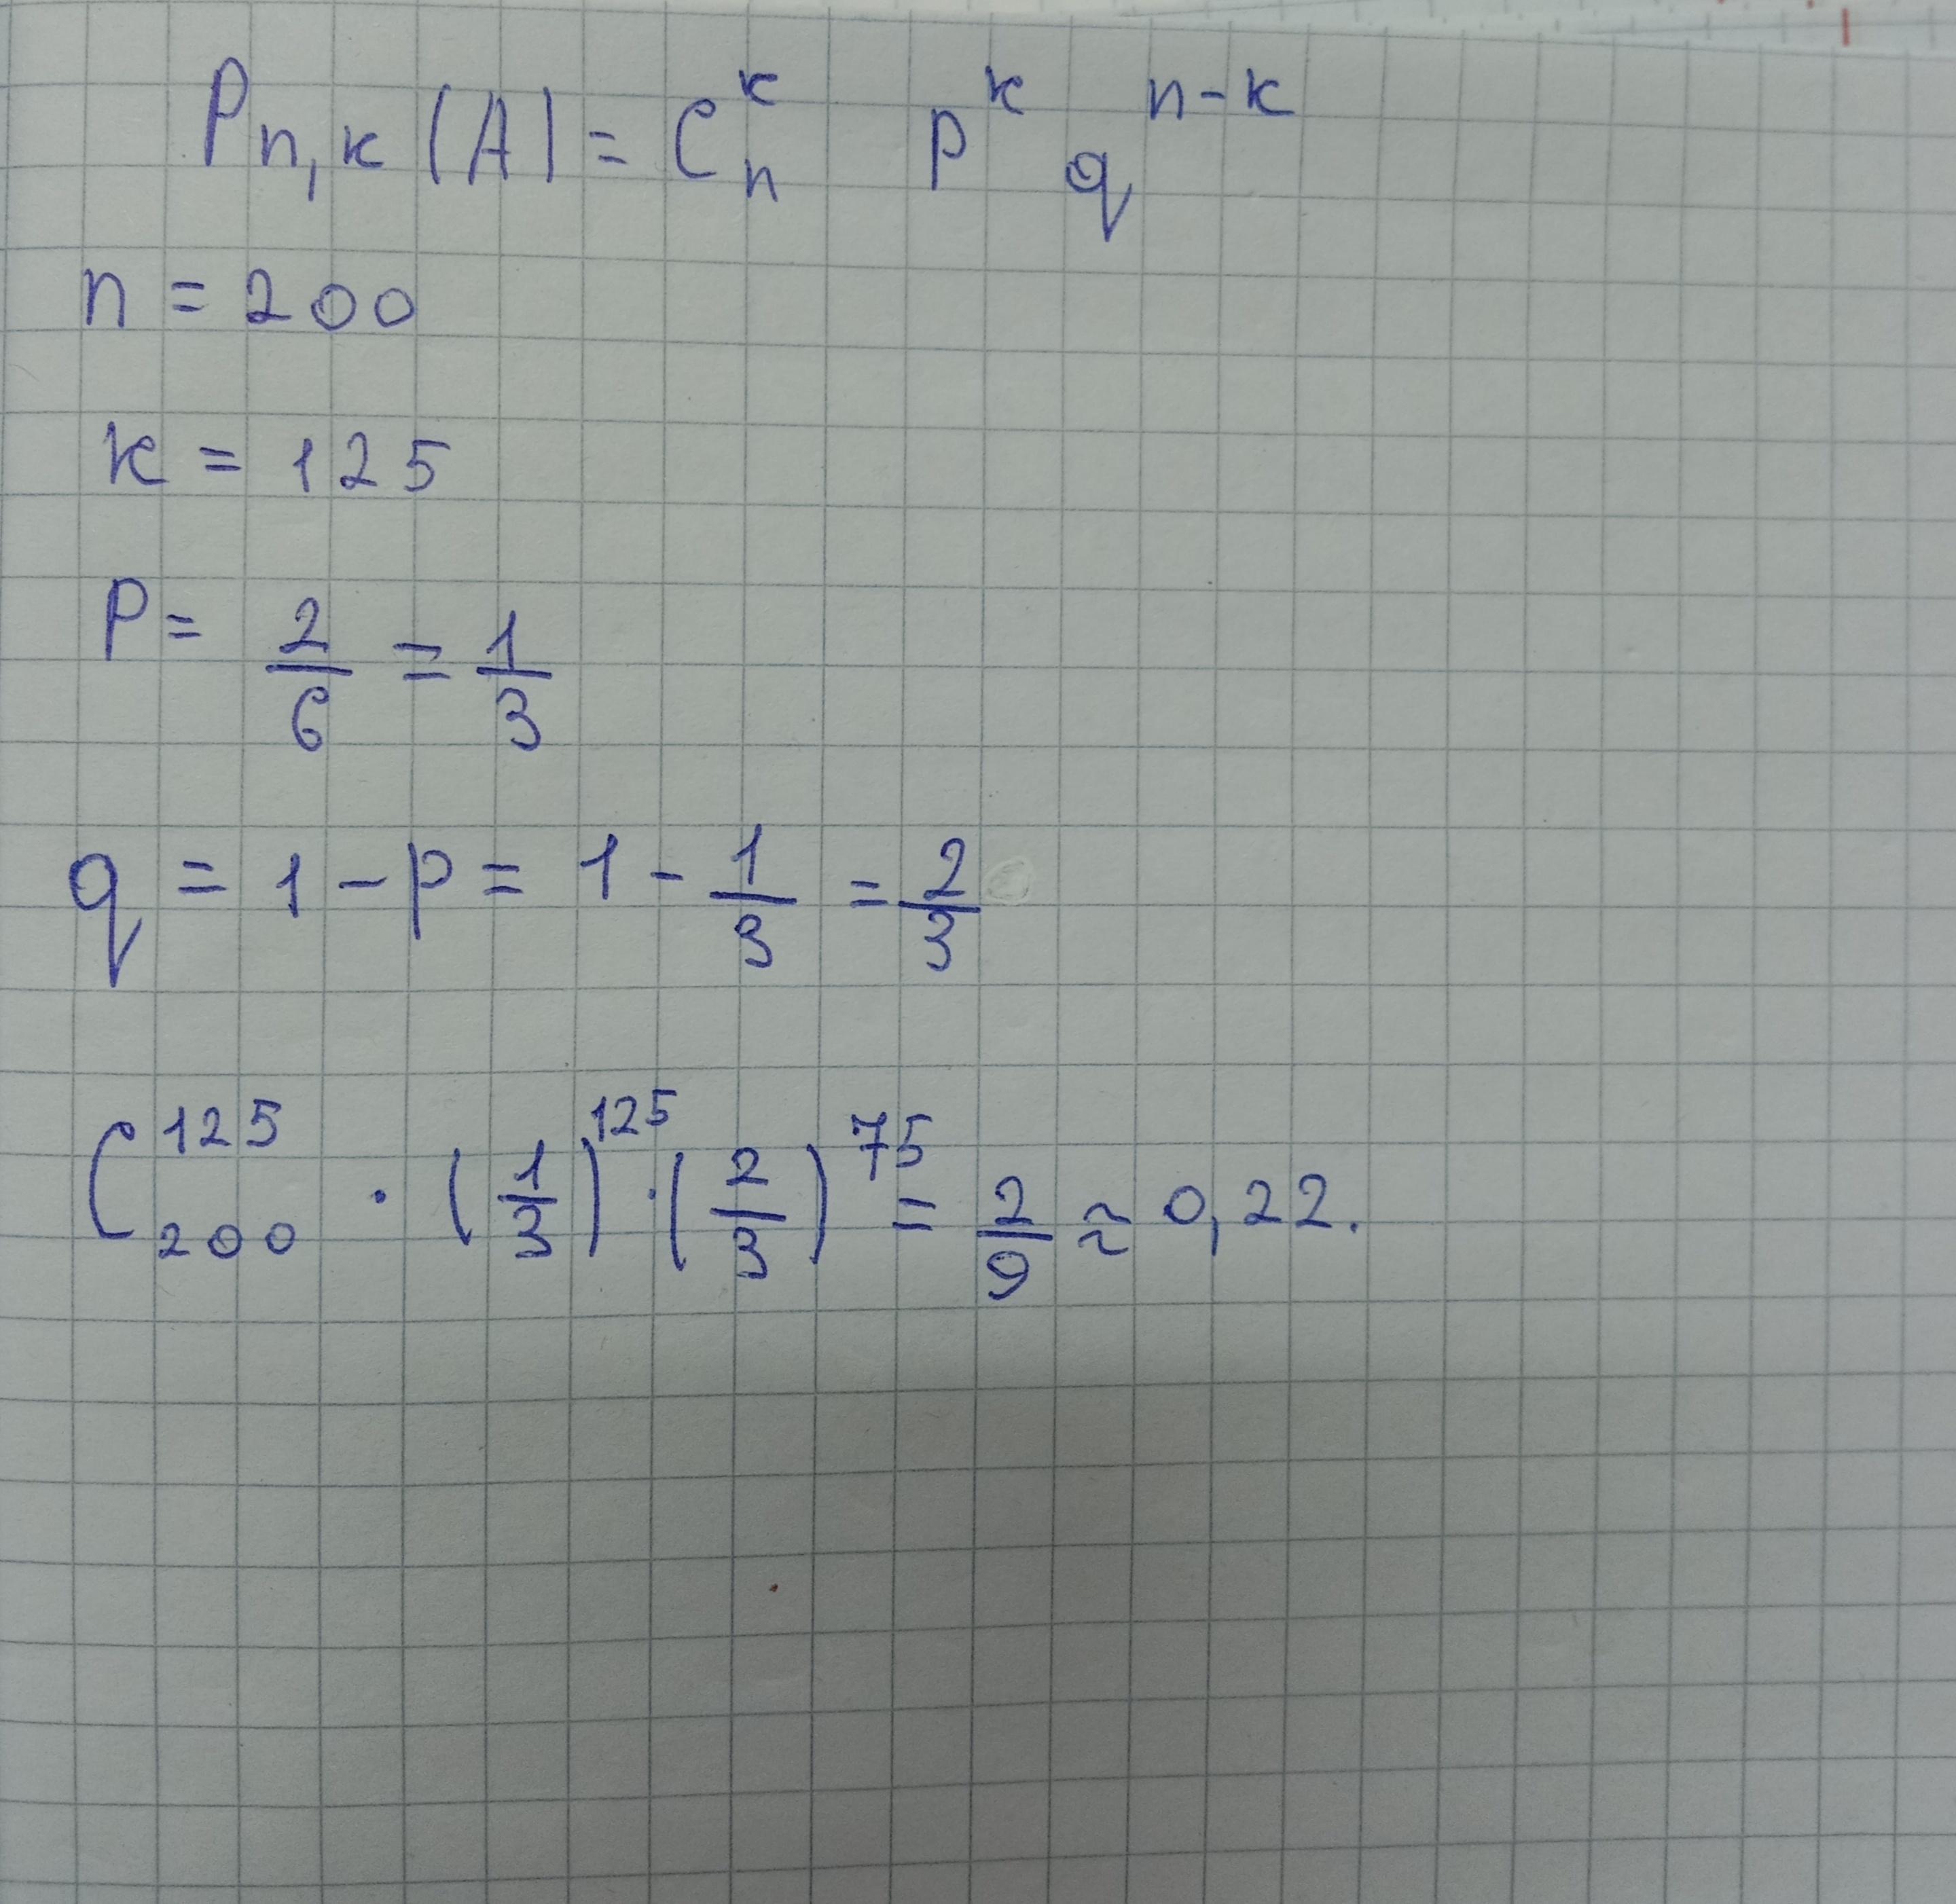 P_{n,k}(A) = C_n^k p^k q^{n-k}
n = 200
k = 125
P = \frac{2}{6} = \frac{1}{3}
q = 1 - p = 1 - \frac{1}{3} = \frac{2}{3}
C_{200}^{125} \cdot (\frac{1}{3})^{125} \cdot (\frac{2}{3})^{75} = \frac{2}{9} ≈ 0,22.